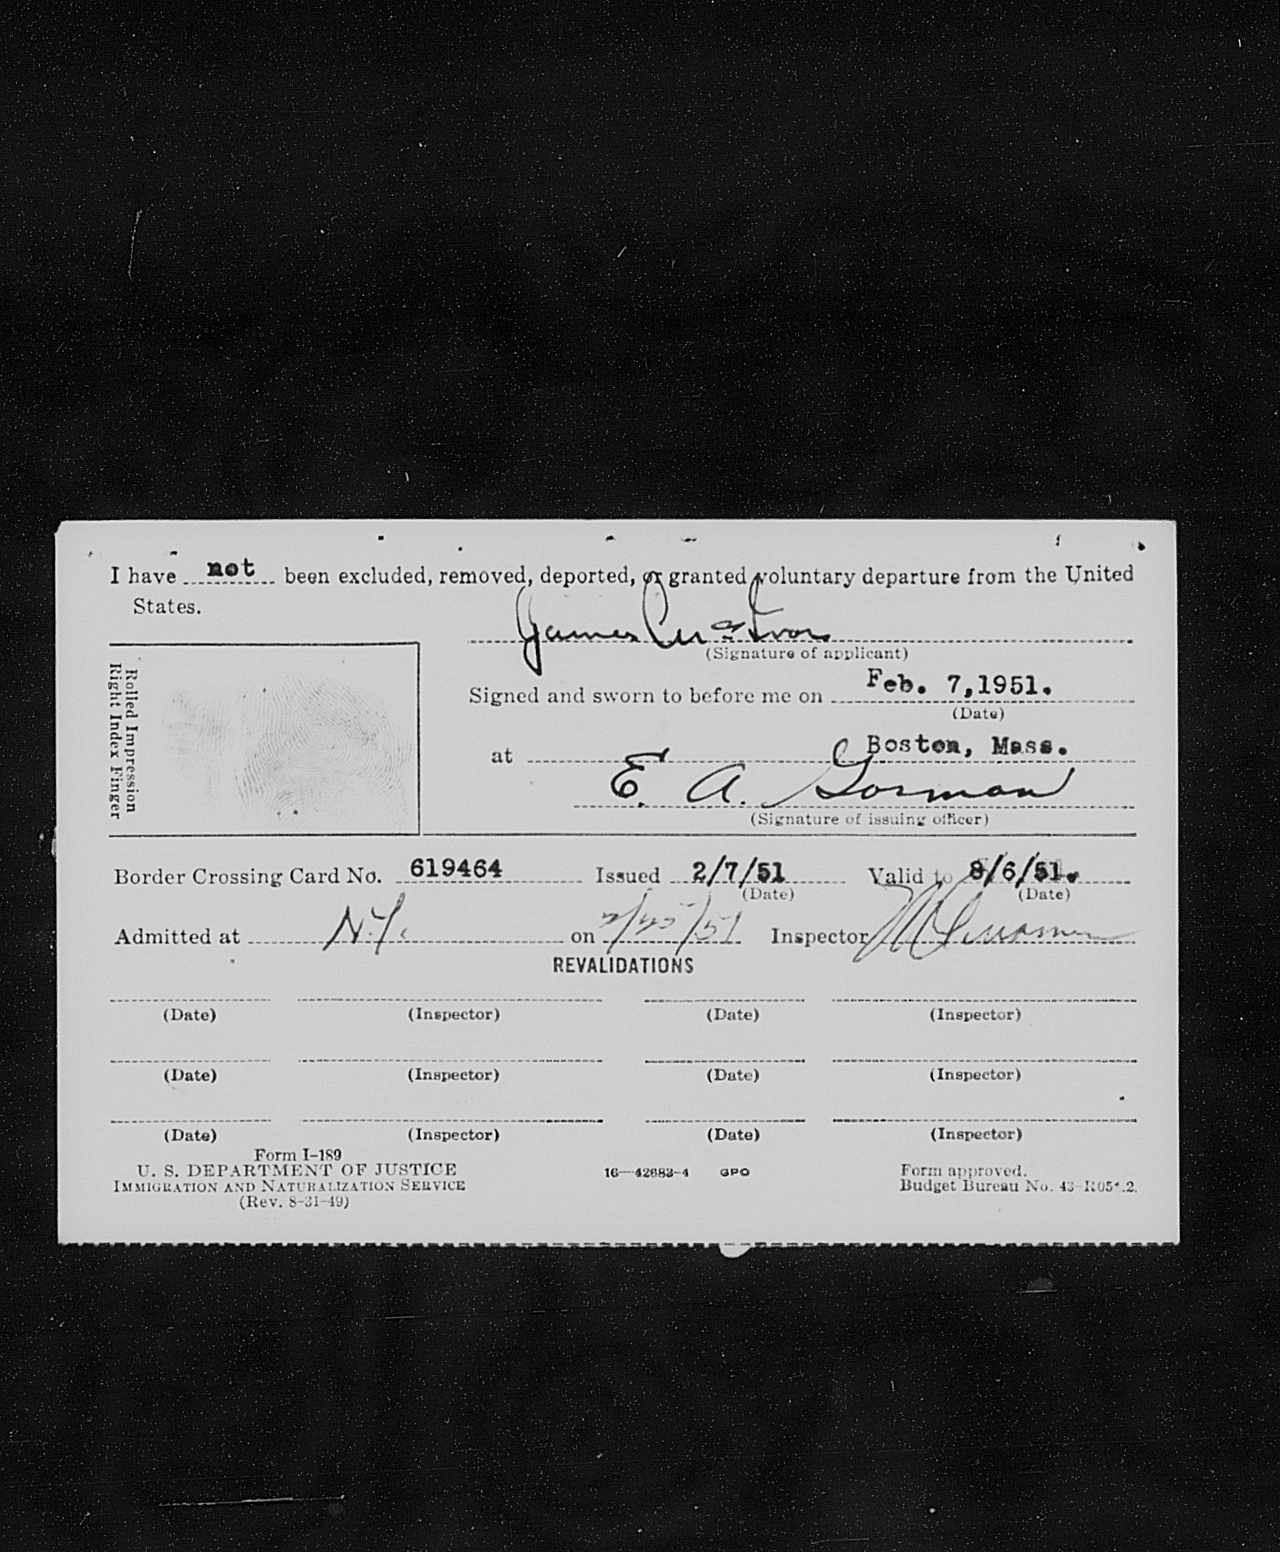 I have not been excluded, removed, deported, or granted voluntary departure from the United
States.
James McIvor
(Signature of applicant)
Rolled Impression
Right Index Finger
Signed and sworn to before me on Feb. 7,1951.
(Date)
at Boston, Mass.
E. A. Gorman
(Signature of issuing officer)
Border Crossing Card No. 619464 Issued 2/7/51 Valid to 8/6/51.
(Date) (Date)
Admitted at N.Y. on 2/25/51 Inspector
REVALIDATIONS
(Date) (Inspector) (Date) (Inspector)
(Date) (Inspector) (Date) (Inspector)
(Date) (Inspector) (Date) (Inspector)
Form I-189
U. S. DEPARTMENT OF JUSTICE 16—42683-4 GPO Form approved.
IMMIGRATION AND NATURALIZATION SERVICE Budget Bureau No.
(Rev. 8-31-49)